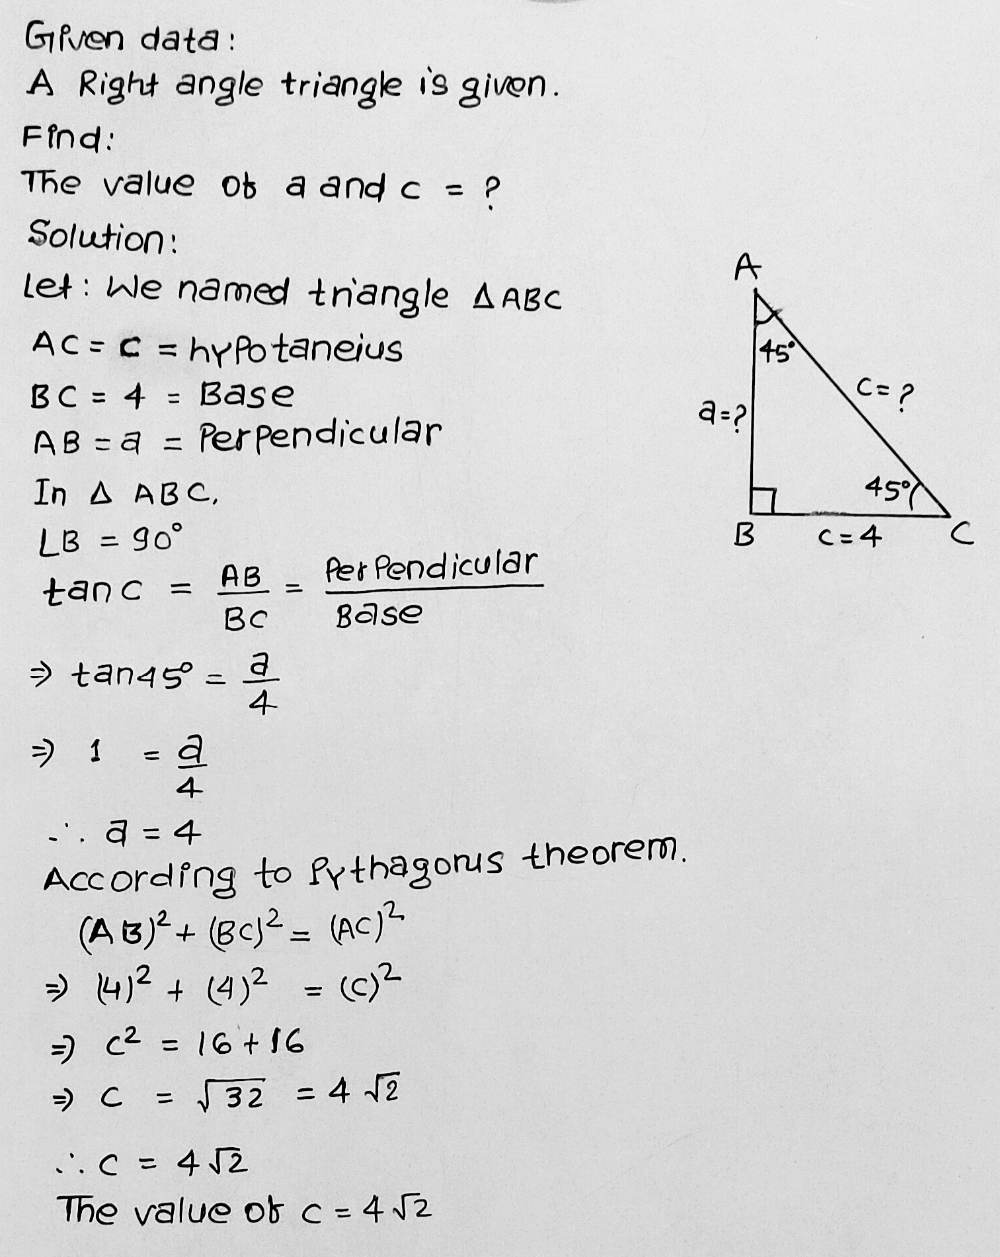 Given data:
A Right angle triangle is given.
Find:
The value of a and c = ?
Solution:
Let: We named triangle △ABC
AC = c = hypotaneius
BC = 4 = Base
AB = a = Perpendicular
In △ ABC,
LB = 90°
tan c = AB/BC = Perpendicular/Base
⇒ tan45° = a/4
⇒ 1 = a/4
∴ a = 4
According to Pythagorus theorem.
(AB)² + (BC)² = (AC)²
⇒ (4)² + (4)² = (c)²
⇒ c² = 16 + 16
⇒ c = √32 = 4√2
∴ c = 4√2
The value of c = 4√2
A
45°
c = ?
a = ?
45°
B c = 4 C